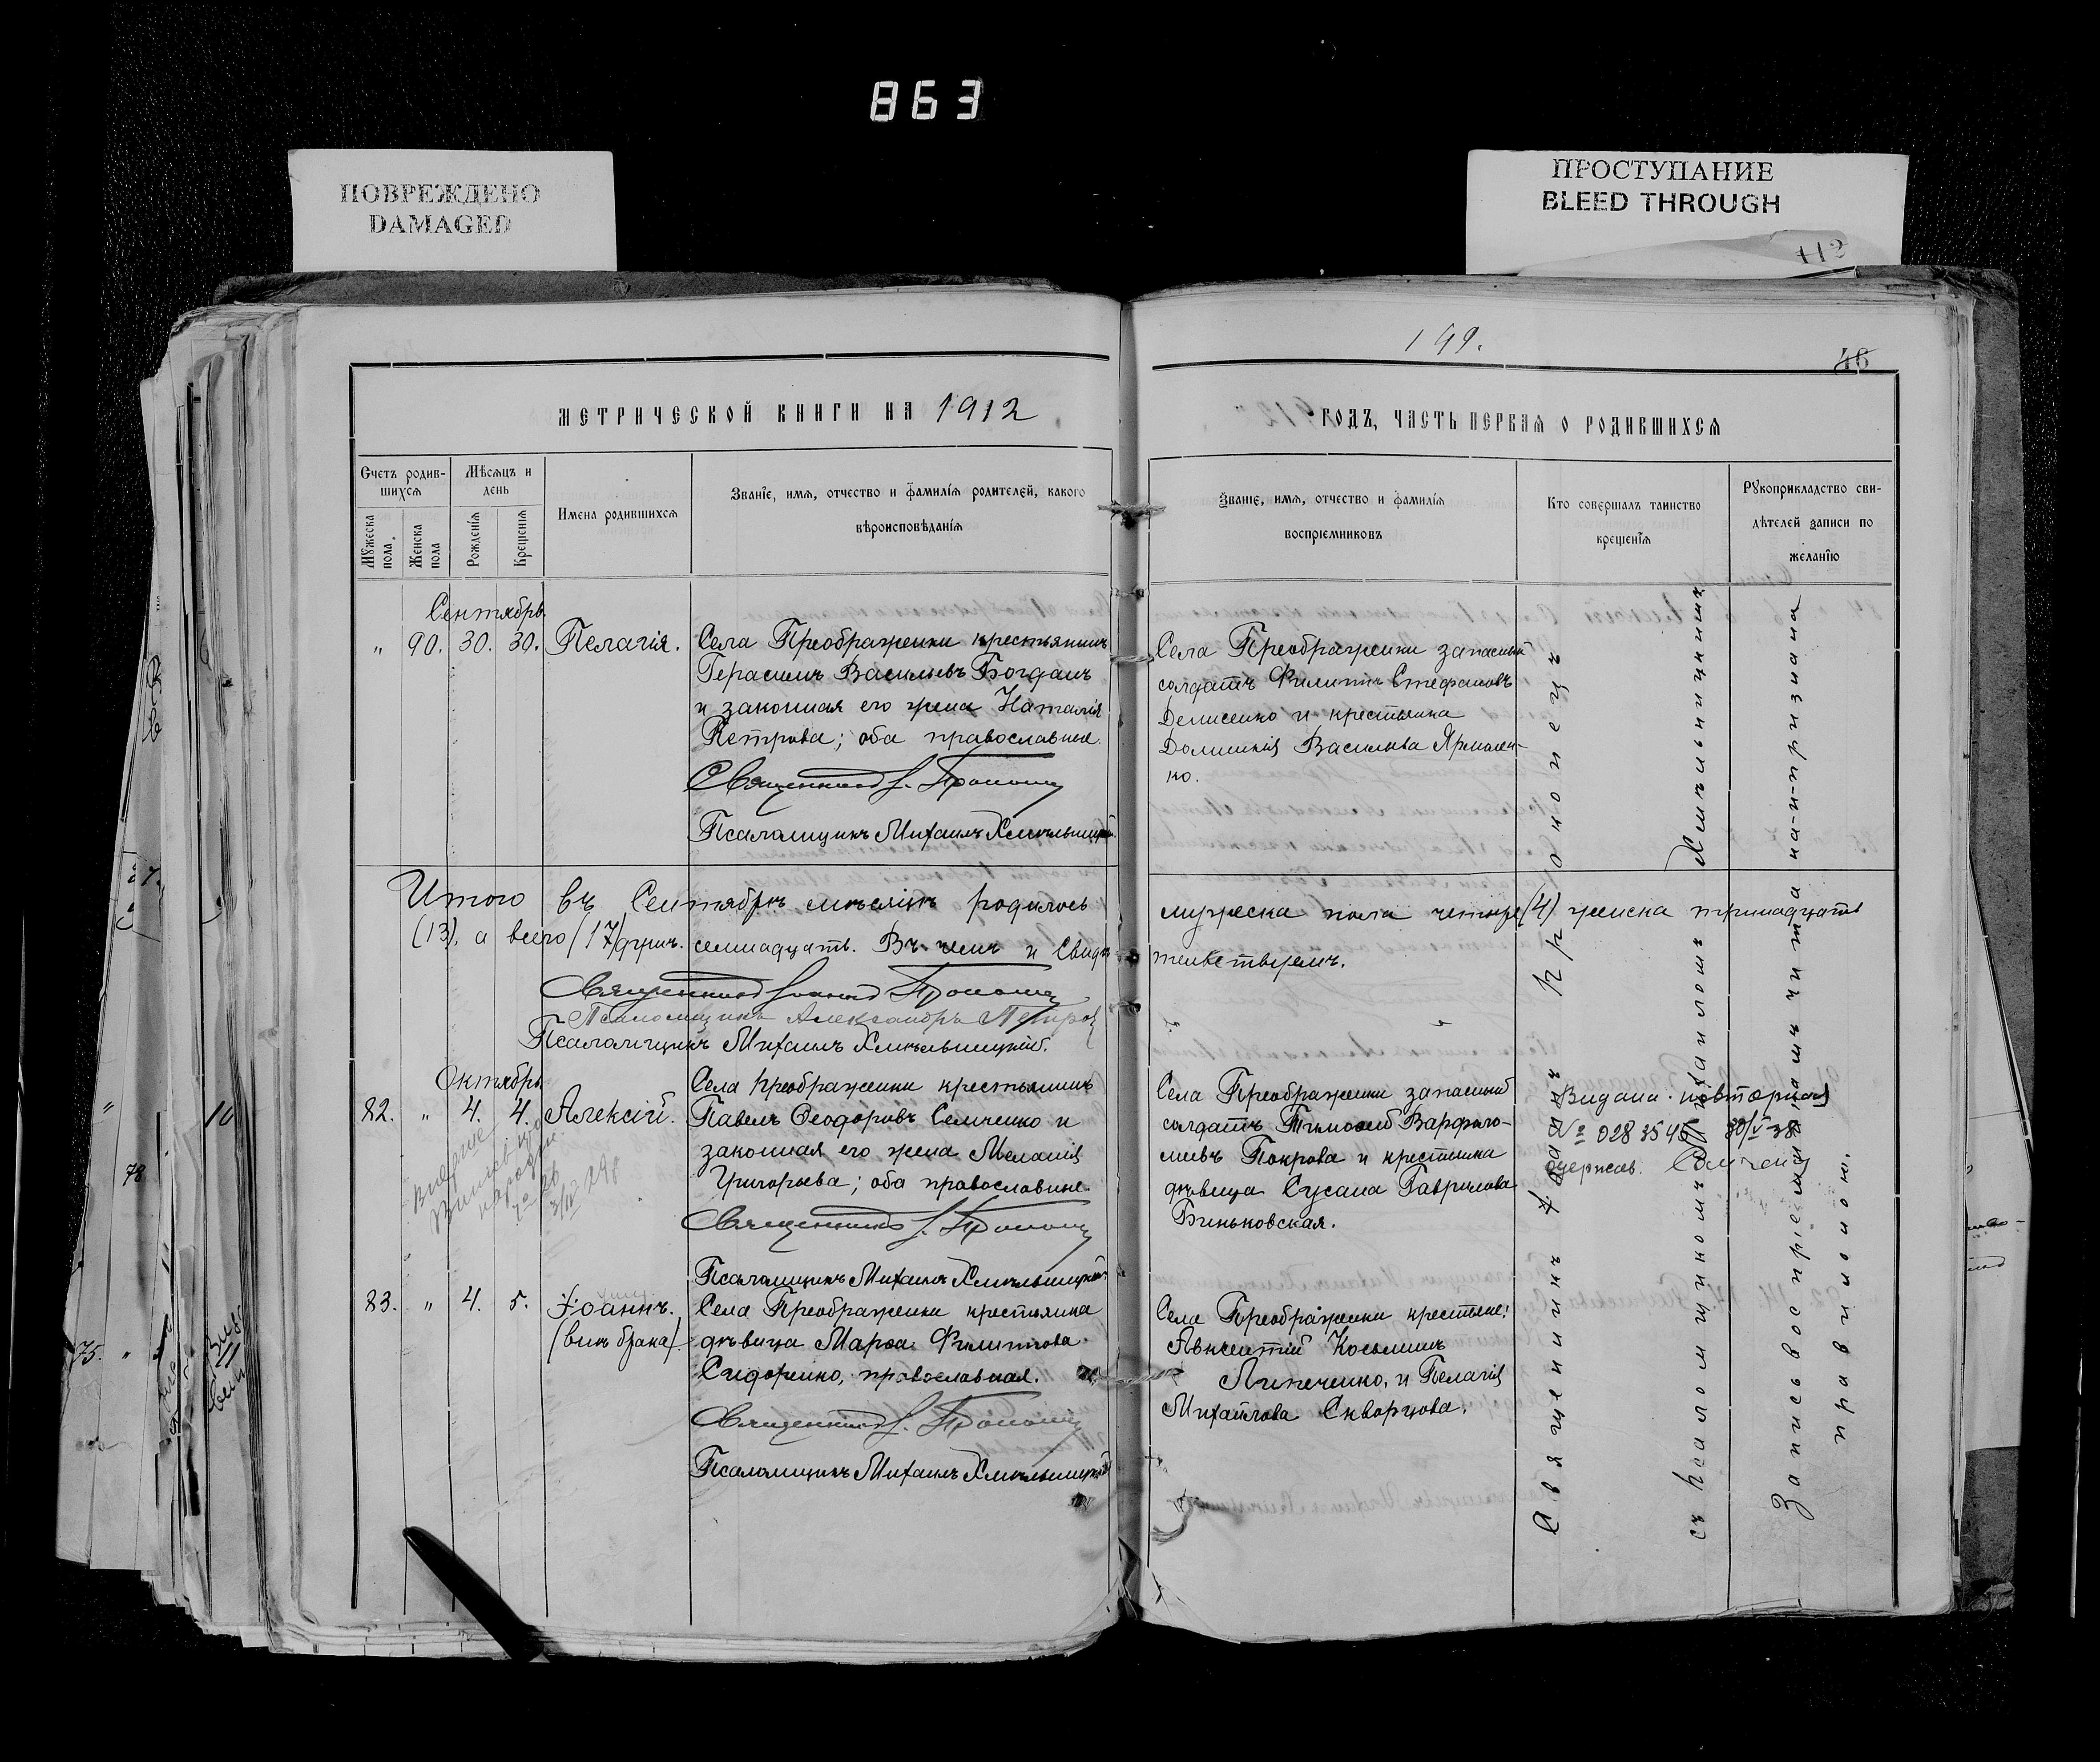 863
ПОВРЕЖДЕНО
DAMAGED
ПРОСТУПАНИЕ
BLEED THROUGH
112
199.
46
МЕТРИЧЕСКОЙ КНИГИ НА 1912
ГОДЪ, ЧАСТЬ ПЕРВАЯ О РОДИВШИХСЯ
Счетъ родив-
шихся
Мѣсяцъ и
день
Мужеска
пола.
Женска
пола
Рожденія
Крещенія
Имена родившихся
Званіе, имя, отчество и фамилія родителей, какого
вѣроисповѣданія
Званіе, имя, отчество и фамилія
воспріемниковъ
Кто совершалъ таинство
крещенія
Рукоприкладство сви-
дѣтелей записи по
желанію
Сентябрь
" 90. 30. 30. Пелагія.
Села Преображенки крестьянинъ
Герасимъ Васильевъ Богданъ
и законная его жена Наталія
Петрова; оба православные.
Священникъ І.
Псаломщикъ Михаилъ Хмѣльницкій.
Села Преображенки запасный
солдатъ Филиппъ Стефановъ
Денисенко и крестьянка
Домникія Васильева Ярмолен-
ко.
Итого въ Сентябрѣ мѣсяцѣ родилось мужеска пола четыре (4) женска тринадцать
(13), а всего (17) душъ. семнадцать. Въ чемъ и свидѣтельствуемъ.
Священникъ Іоаннъ
Псаломщикъ Александръ Петров
Псаломщикъ Михаилъ Хмѣльницкій.
Октябрь
82. " 4. 4. Алексій.
Села Преображенки крестьянинъ
Павелъ Ѳеодоровъ Семченко и
законная его жена Меланія
Григорьева; оба православные.
Священникъ І.
Псаломщикъ Михаилъ Хмѣльницкій
Села Преображенки запасный
солдатъ Тимоѳей Варфоло-
меевъ Покрова и крестьянка
дѣвица Сусана Гаврилова
Биньковская.
Видана повторная
№ 028354 30/V-38
одержав. Семченко
83. " 4. 5. Іоаннъ.
(внѣ брака)
Села Преображенки крестьянка
дѣвица Марѳа Филиппова
Сидоренко, православная.
Священникъ І.
Псаломщикъ Михаилъ Хмѣльницкій
Села Преображенки крестьяне:
Авксентій Косьминъ
Липеченко, и Пелагія
Михайлова Скворцова.
Священникъ Іоаннъ
съ псаломщикомъ Михаиломъ Хмѣльницкимъ
Запись воспріемниками читана и признана
правильною.
78
75. "
10